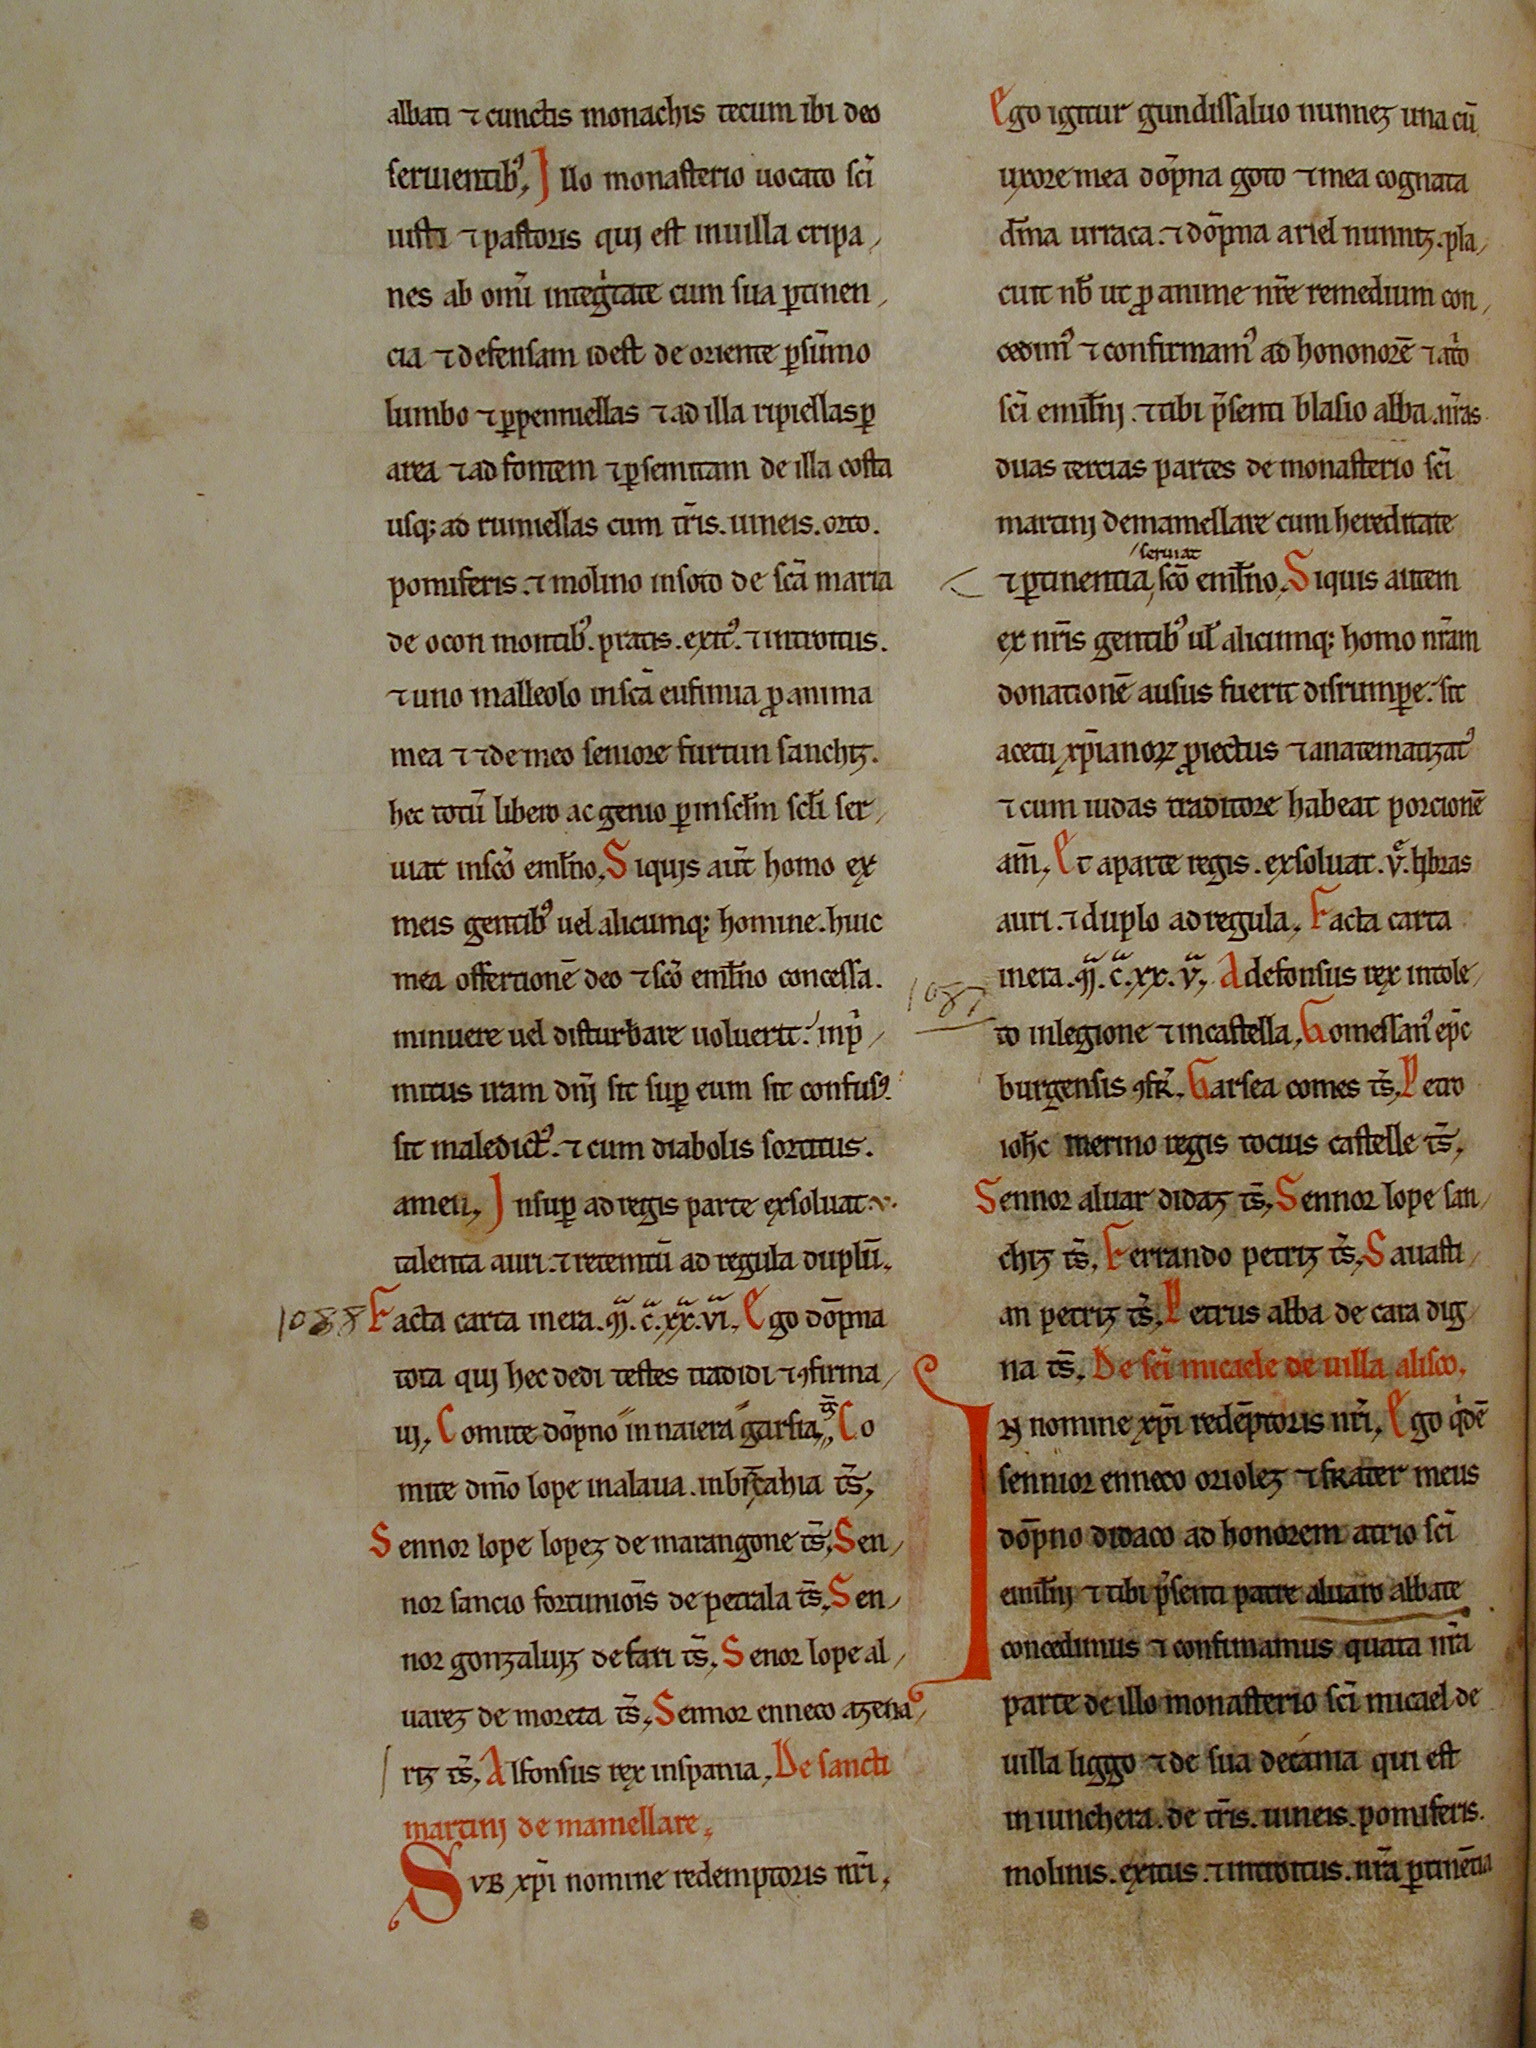 abbati ⁊ cunctis monachis tecum ibi deo
seruientib᾽. Illo monasterio uocato sc̄i
iusti ⁊ pastoris quj est inuilla cripa
nes ab om̄i integ̍tate cum sua ꝑtinen
cia ⁊ defensam idest de oriente ꝑsūmo
lumbo ⁊ ꝑpennuellas ⁊ ad illa ripiellas ꝑ
area ⁊ ad fontem ⁊ ꝑsemitam de illa costa
usq; ad riuniellas cum tr̄is. uineis. orto.
pomiferis. ⁊ molino insoto de sc̄a maria
de ocon montib᾽. pratis. exit᾽. ⁊ introitus.
⁊ uno malleolo insc̄a eufimia ꝓ anima
mea ⁊ ⁊ de meo seniore furtun sanchiz.
hec totū libero ac genio ꝑinscl̄m scl̄i ser
uiat insc̄o emil̄no. Siquis aut̄ homo ex
meis gentib᾽ uel alicumq; homine. huic
mea offertionē deo ⁊ sc̄o emil̄no concessa.
minuere uel disturbare uoluerit. inp̍
mitus iram dn̄j sit suꝑ eum sit confusꝰ.
sit maledict᾽. ⁊ cum diabolis sortitus.
amen. Insuꝑ ad regis parte exsoluat. v.
talenta auri. ⁊ retemtū ad regula duplū.
1088 Facta carta inera. ꟾꟾ. c̄. xx. vi. Ego dōpna
tota quj hec dedi testes tradidi ⁊ ꝯfirma
uj. Comite dōpno in naiera garsia, ts̄ Co
mite dm̄o lope inalaua. inbizcahia ts̄,
Sennor lope lopez de marangone ts̄, Sen
nor sancio fortunioīs de petrala ts̄, Sen
nor gonzaluiz de fari ts̄, Senor lope al
uarez de moreta ts̄, Sennor enneco azena
riz ts̄, Alfonsus rex inspania. De sancti
martinj de mamellare.
SVB xp̄i nomine redemptoris nr̄i,
Ego igitur gundissaluo nunnez una cū
uxore mea dōpna goto ⁊ mea cognata
dm̄na urraca. ⁊ dōpna ariel nunniz. pla
cuit nb̄ ut ꝓ anime nr̄e remedium con
cedim᾽ ⁊ confirmam᾽ ad hononorē ⁊ at̍o
sc̄i emil̄nj. ⁊ tibi p̄senti blasio abba. nr̄as
duas tercias partes de monasterio sc̄i
martinj demamellare cum hereditate
seruiat
⁊ ꝑtinentia, sc̄o emil̄no. Siquis autem
ex nr̄is gentib᾽ ul̄ alicumq; homo nr̄am
donationē ausus fuerit disrumꝑe. sit
acetu xp̄ianoꝝ ꝓiectus ⁊ anatematizat᾽
⁊ cum iudas traditore habeat porcionē
am̄. Et aparte regis. exsoluat. v̄. libras
auri. ⁊ duplo ad regula. Facta carta
1087 inera. ꟾꟾ. c̄. xx. v. Adefonsus rex intole
to inlegione ⁊ incastella. Gomessan᾽ ep̄c
burgensis ꝯfr̄. Garsea comes ts̄, Petro
ioh̄c merino regis tocius castelle ts̄,
Sennor aluar didaz ts̄, Sennor lope san
chiz ts̄, Ferrando petriz ts̄, Sauasti
an petriz ts̄, Petrus abba de cara dig
na ts̄. De sc̄i micaele de uilla alisco.
IN nomine xp̄i redēptoris nr̄i. Ego q̍dē
sennior enneco oriolez ⁊ frater meus
dōpno didaco ad honorem atrio sc̄i
emil̄nj ⁊ tibi p̄senti patre aluaro abbate
concedimus ⁊ confirmamus quarta nr̄a
parte de illo monasterio sc̄i micael de
uilla liggo ⁊ de sua decania qui est
in iunchera. de tr̄is. uineis. pomiferis.
molinis. exitus. ⁊ introitus. nr̄a ꝑtinētia